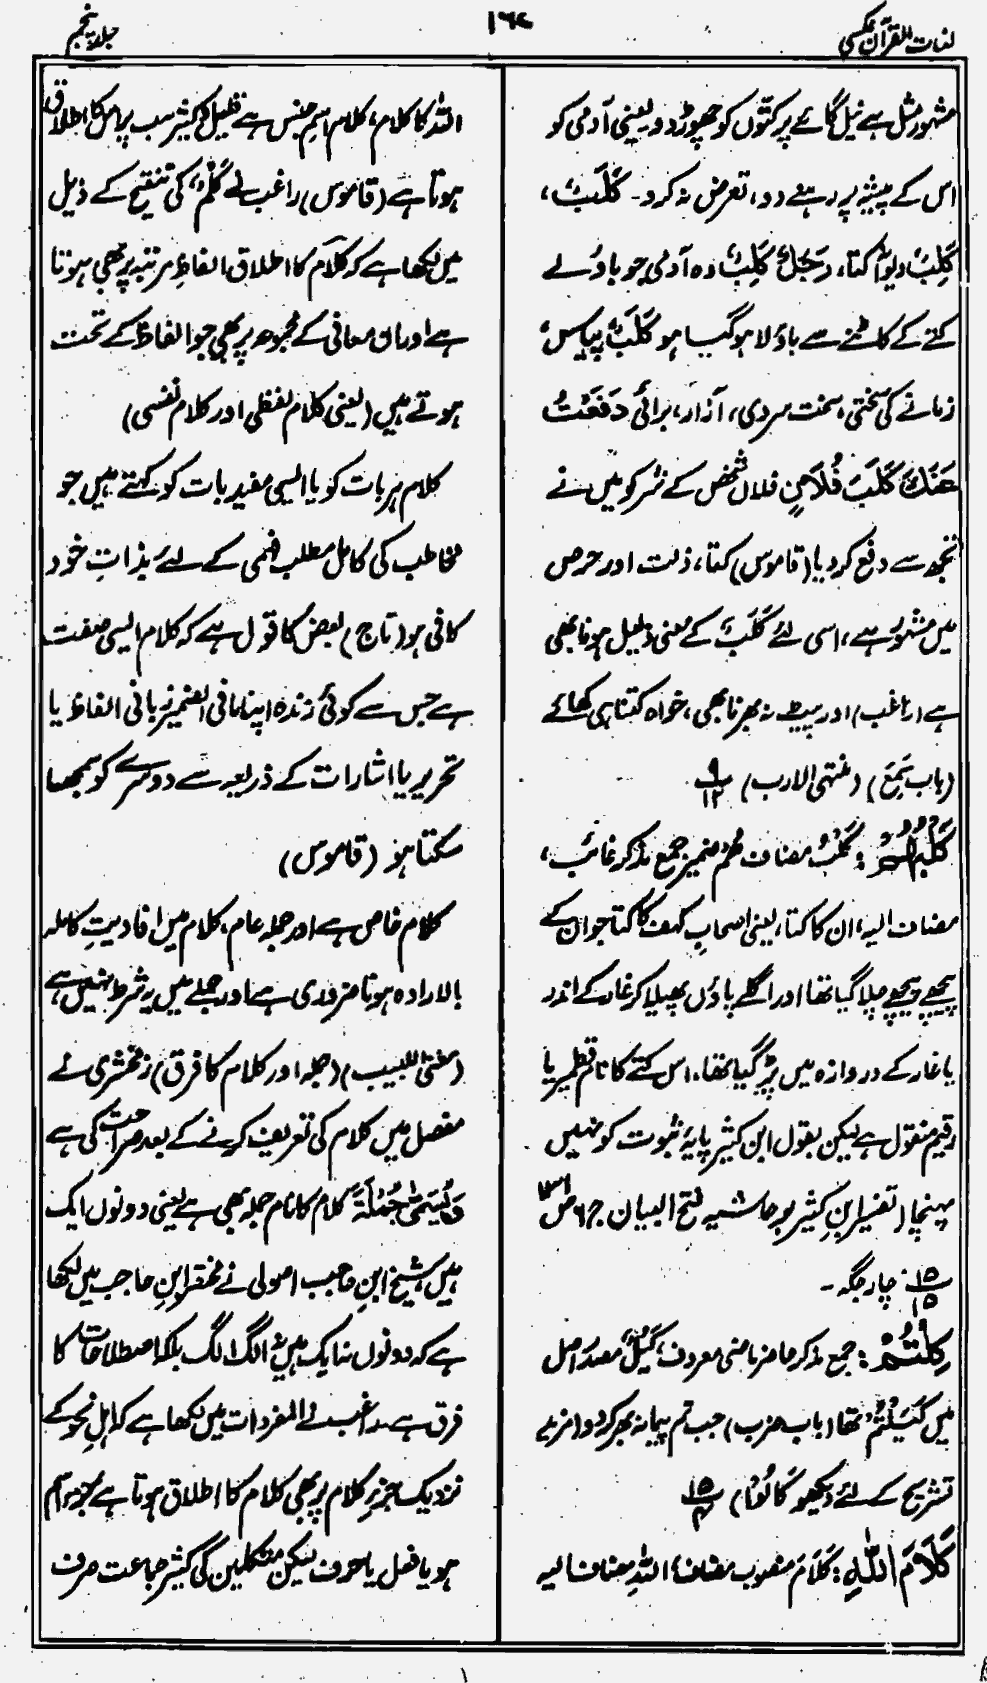 لغات القرآن عکسی
۱۶۷
جلد پنجم
مشہور مثل ہے نیل گائے پر کتّوں کو چھوڑ دو یعنی آدمی کو
اس کے پیشہ پر رہنے دو، تعرض نہ کرو۔ كَلَبٌ،
كَلِبٌ دیوانہ کتا، رَجُلٌ كَلِبٌ وہ آدمی جو باؤلے
کتے کے کاٹنے سے باؤلا ہو گیا ہو كَلَبٌ پیاس،
زمانے کی سختی، سخت سردی، آزار، برائی دَفَعْتُ
عَنْكَ كَلَبَ فُلَانٍ فلاں شخص کے شر کو میں نے
تجھ سے دفع کر دیا (قاموس) کتا، ذلت اور حرص
میں مشہور ہے، اسی لئے كَلَبَ کے معنی ذلیل ہونا بھی
ہے (راغب) اور پیٹ نہ بھرنا بھی، خواہ کتنا ہی کھائے
(باب سَمِعَ) (منتہی الارب) ۹/۱۲
كَلْبُهُمْ: كَلْبُ مضاف هُمْ ضمیر جمع مذکر غائب،
مضاف الیہ، ان کا کتا، یعنی اصحابِ کہف کا کتا جو ان کے
پیچھے پیچھے چلا گیا تھا اور اگلے پاؤں پھیلا کر غار کے اندر
یا غار کے دروازہ میں پڑ گیا تھا، اس کتے کا نام قطمیر یا
رقیم منقول ہے لیکن بقول ابن کثیر پایۂ ثبوت کو نہیں
پہنچا (تفسیر ابنِ کثیر بر حاشیہ فتح البیان ج ۶ ص
۱۵/۱۵ چار جگہ۔
كِلْتُمْ: جمع مذکر حاضر ماضی معروف، كَيْلٌ مصدر اصل
میں كَيَلْتُمْ تھا (باب ضرب) جب تم پیمانہ بھر کر دو (مزید
تشریح کے لئے دیکھو كَالُوْا) ۱۵/۴
كَلَامَ اللّٰهِ: كَلَامَ منصوب مضاف، اللّٰهِ مضاف الیہ
اللہ کا کلام، کلام اسم جنس ہے قلیل و کثیر سب پر اس کا اطلاق
ہوتا ہے (قاموس) راغب نے كَلْمٌ کی تنقیح کے ذیل
میں لکھا ہے کہ كَلَام کا اطلاق الفاظِ مرتبہ پر بھی ہوتا
ہے اور ان معانی کے مجموعہ پر بھی جو الفاظ کے تحت
ہوتے ہیں (یعنی کلام لفظی اور کلام نفسی)
کلام ہر بات کو یا ایسی مفید بات کو کہتے ہیں جو
مخاطب کی کامل مطلب فہمی کے لئے بذاتِ خود
کافی ہو (تاج) بعض کا قول ہے کہ کلام ایسی صفت
ہے جس سے کوئی زندہ اپنا ما فی الضمیر زبانی الفاظ یا
تحریر یا اشارات کے ذریعہ سے دوسرے کو سمجھا
سکتا ہو (قاموس)
کلام خاص ہے اور جملہ عام، کلام میں افادیتِ کاملہ
بالارادہ ہونا ضروری ہے اور جملے میں یہ شرط نہیں ہے
(مغنی اللبیب) (جملہ اور کلام کا فرق) زمخشری نے
مفصل میں کلام کی تعریف کرنے کے بعد صراحت کی ہے
وَيُسَمّٰى جُمْلَةً کلام کا نام جملہ بھی ہے یعنی دونوں ایک
ہیں، شیخ ابنِ حاجب اصولی نے مختصر ابنِ حاجب میں لکھا
ہے کہ دونوں نہ ایک ہیں نہ الگ الگ بلکہ اصطلاحات کا
فرق ہے۔ راغب نے المفردات میں لکھا ہے کہ اہلِ نحو کے
نزدیک جزءِ کلام پر بھی کلام کا اطلاق ہوتا ہے جزء اسم
ہو یا فعل یا حرف لیکن متکلمین کی کثیر جماعت صرف